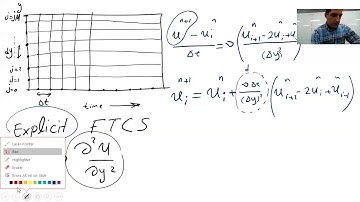 y
j=jM
dy
j=2
j=1
j=0
Δt time
uᵢⁿ⁺¹ - uᵢⁿ
Δt
= ν (uᵢ₊₁ⁿ - 2uᵢⁿ +
(Δy)²
uᵢⁿ⁺¹ = uᵢⁿ + νΔt/(Δy)² (uᵢ₊₁ⁿ - 2uᵢⁿ + uᵢ₋₁ⁿ)
Explicit FTCS
∂²u
∂y²
Laser Pointer
Pen
Highlighter
Eraser
Erase All Ink on Slide